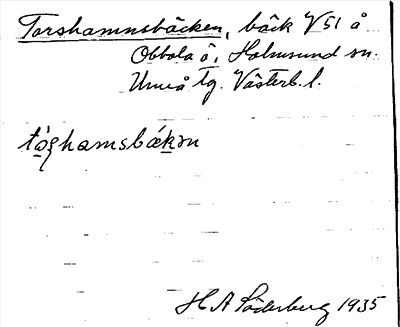 Torshamnsbäcken, bäck V 51 å
Obbola ö, Holmsund sn.
Umeå tg. Västerb. l.
tóʂhamsbákən
H A Söderberg 1935